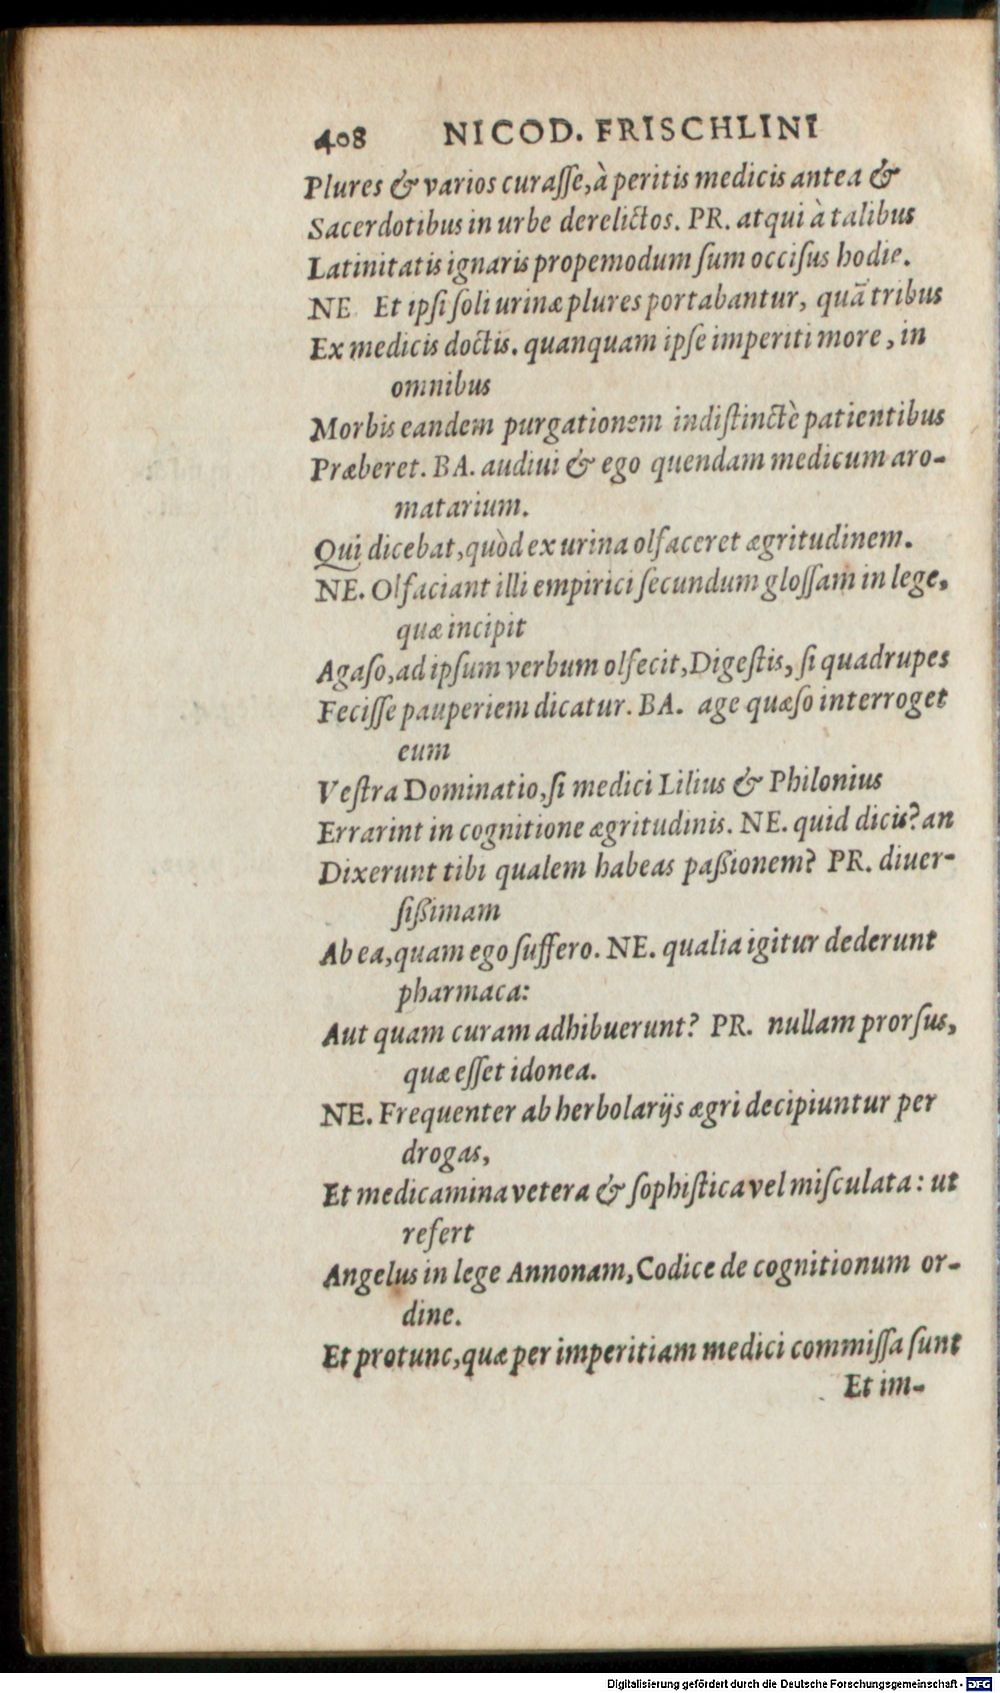 408 NICOD. FRISCHLINI
Plures & varios curaſſe, à peritis medicis antea &
Sacerdotibus in urbe derelictos. PR. atqui à talibus
Latinitatis ignaris propemodum ſum occiſus hodie.
NE Et ipſi ſoli urinæ plures portabantur, quã tribus
Ex medicis doctis. quanquam ipſe imperiti more, in
omnibus
Morbis eandem purgationem indiſtinctè patientibus
Præberet. BA. audiui & ego quendam medicum aro-
matarium.
Qui dicebat, quòd ex urina olfaceret ægritudinem.
NE. Olfaciant illi empirici ſecundum gloſſam in lege,
quæ incipit
Agaſo, ad ipſum verbum olfecit, Digeſtis, ſi quadrupes
Feciſſe pauperiem dicatur. BA. age quæſo interroget
eum
Veſtra Dominatio, ſi medici Lilius & Philonius
Errarint in cognitione ægritudinis. NE. quid dicis? an
Dixerunt tibi qualem habeas paßionem? PR. diuer-
ſißimam
Ab ea, quam ego ſuffero. NE. qualia igitur dederunt
pharmaca:
Aut quam curam adhibuerunt? PR. nullam prorſus,
quæ eſſet idonea.
NE. Frequenter ab herbolarijs ægri decipiuntur per
drogas,
Et medicamina vetera & ſophiſtica vel miſculata: ut
refert
Angelus in lege Annonam, Codice de cognitionum or-
dine.
Et protunc, quæ per imperitiam medici commiſſa ſunt
Et im-
Digitalisierung gefördert durch die Deutsche Forschungsgemeinschaft - DFG